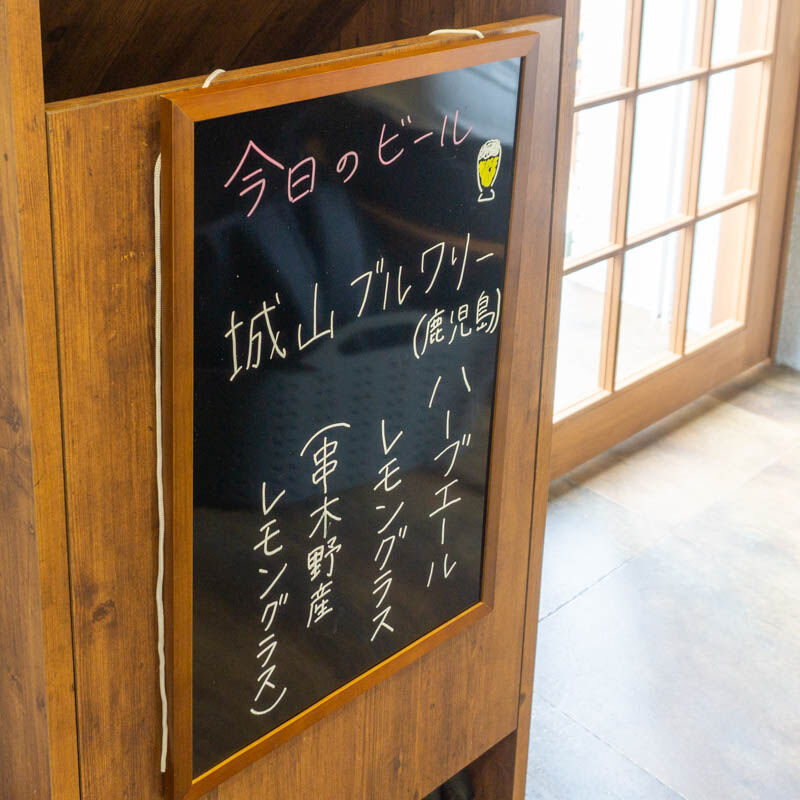 今日のビール
城山ブルワリー
(鹿児島)
ハーブエール
レモングラス
(串木野産
レモングラス)